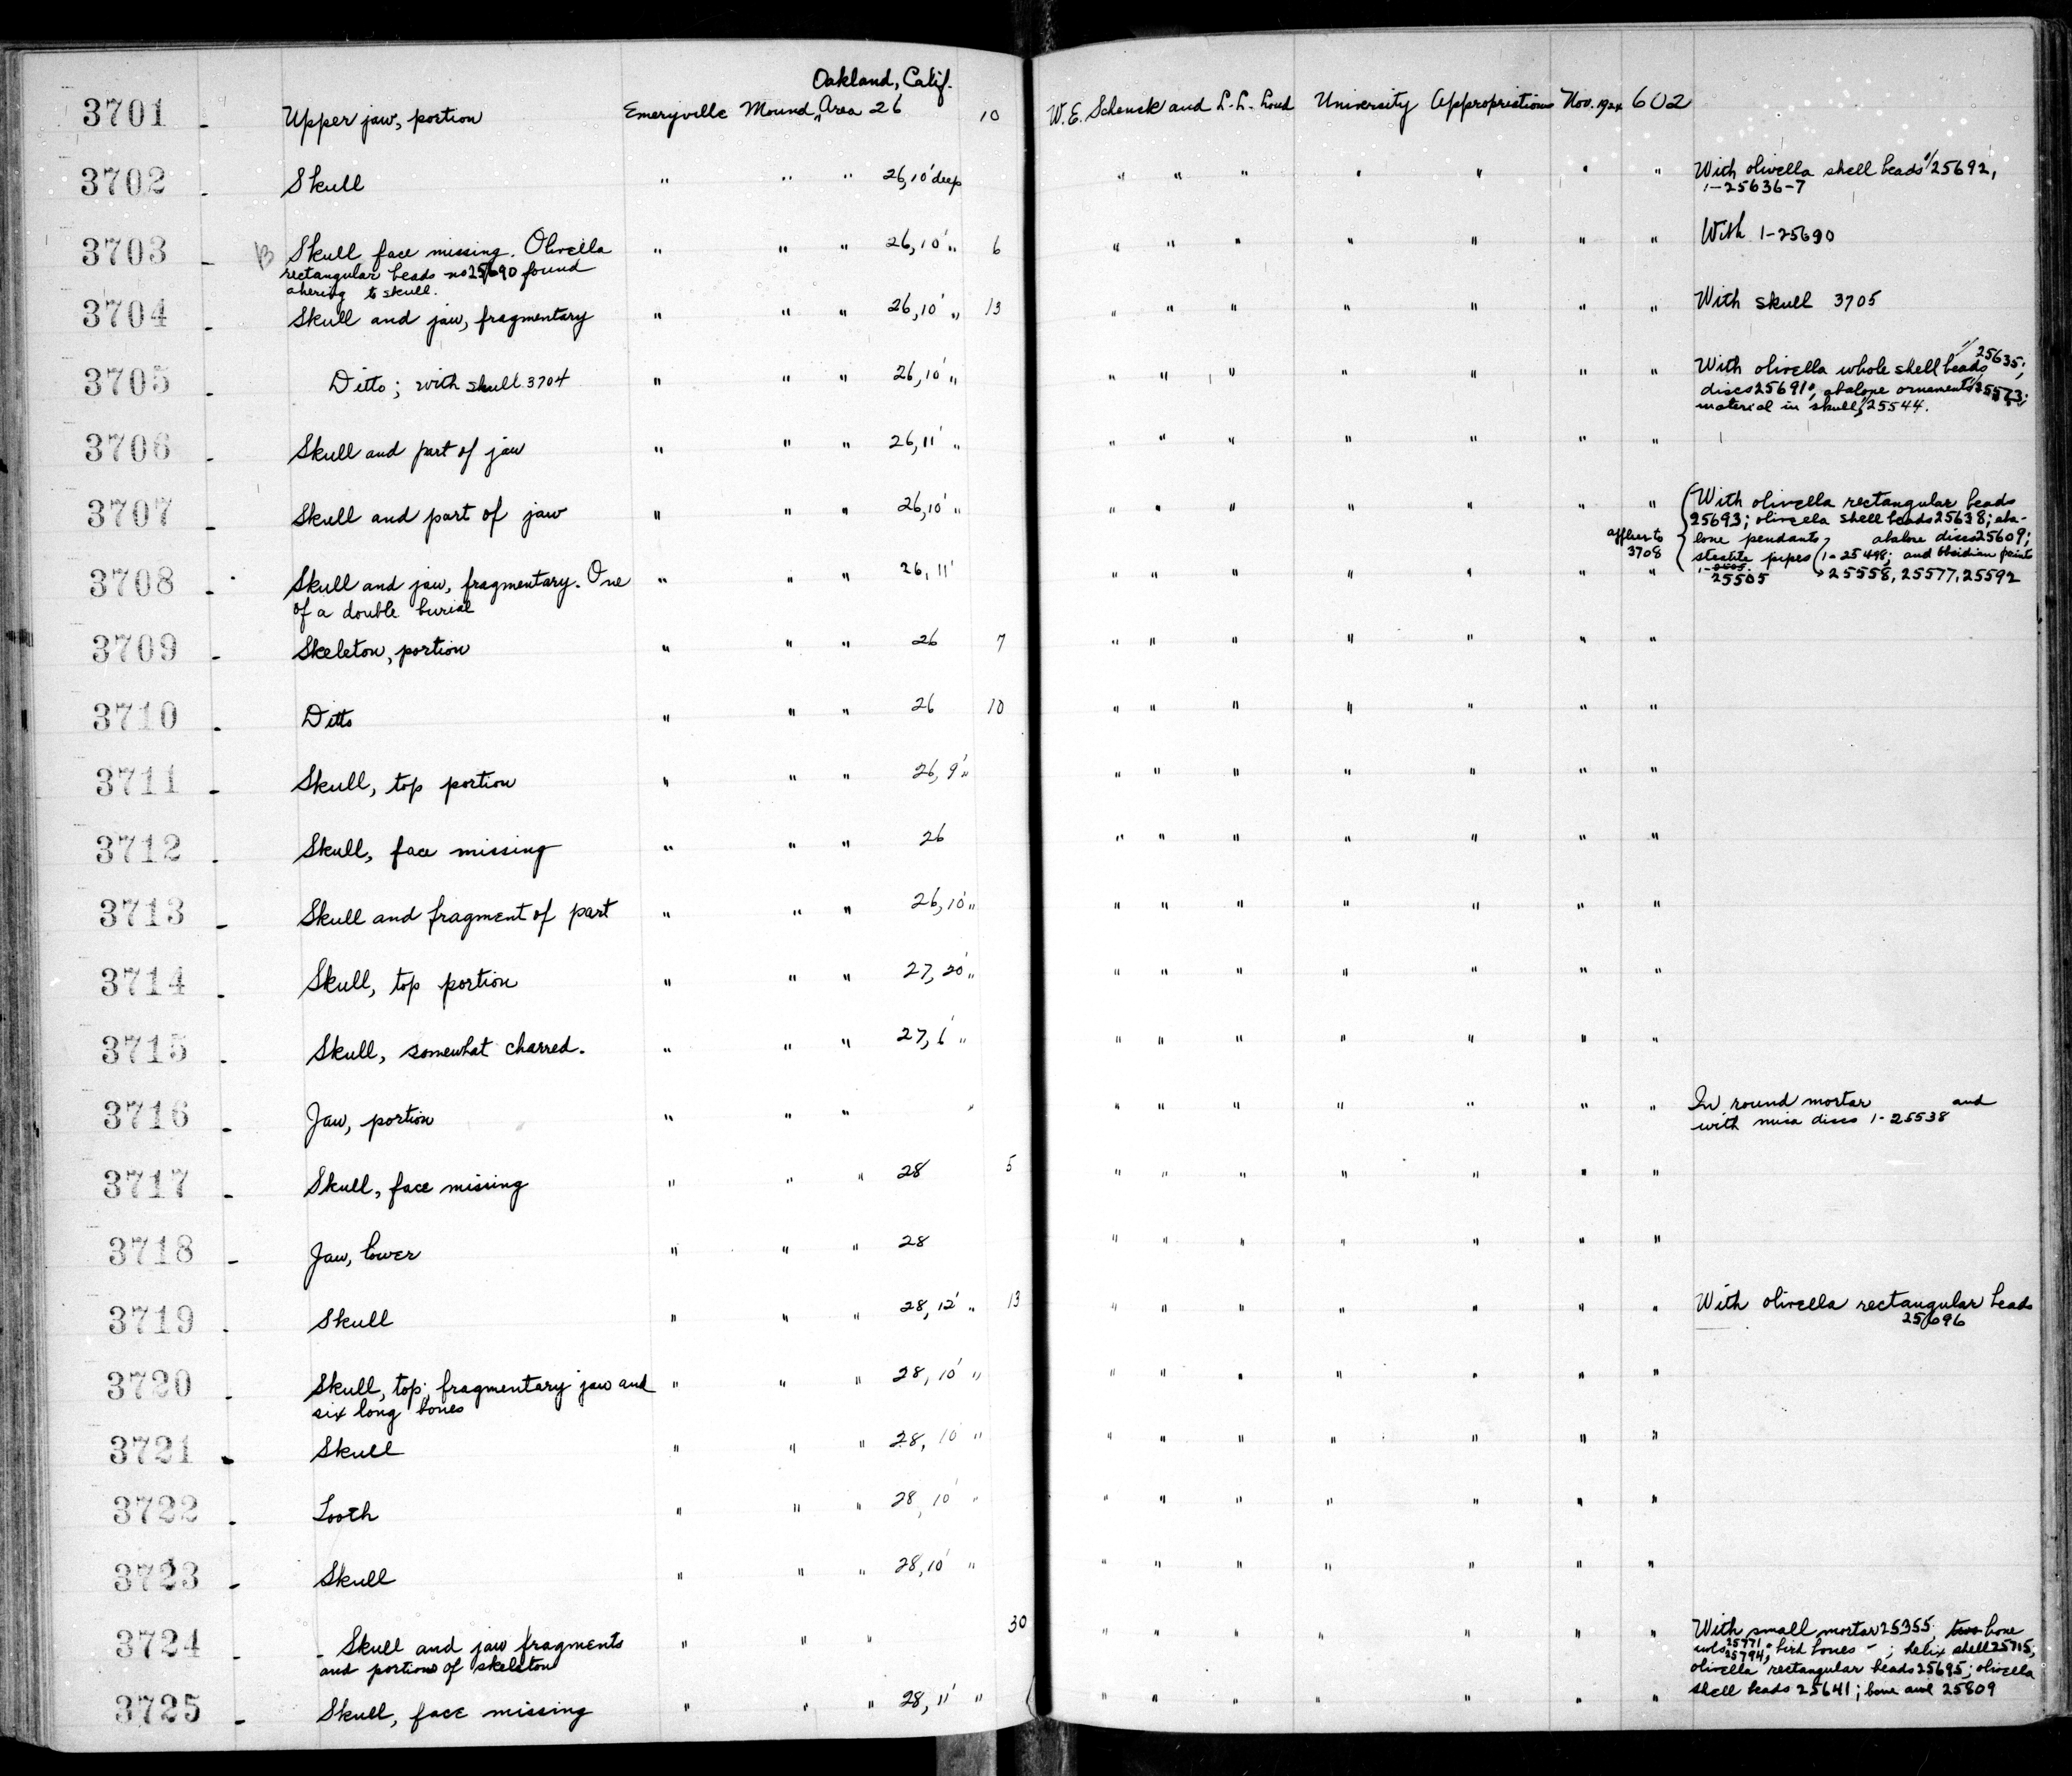 Oakland, Calif.
3701 - Upper jaw, portion Emeryville Mound, Area 26 10 W. E. Schenck and L. L. Loud University Appropriations Nov. 1924 602
3702 - Skull " " " 26, 10' deep " " " " " " " With olivella shell beads 25692,
1-25636-7
3703 - Skull face missing. Olivella " " " 26, 10' " 6 " " " " " " " With 1-25690
rectangular beads no 25690 found
ahering to skull.
3704 - Skull and jaw, fragmentary " " " 26, 10' " 13 " " " " " " " With skull 3705
3705 - Ditto; with skull 3704 " " " 26, 10' " " " " " " " " With olivella whole shell beads 25635;
discs 25691; abalone ornaments 25573;
material in skull, 25544.
3706 - Skull and part of jaw " " " 26, 11' " " " " " " " "
3707 - Skull and part of jaw " " " 26, 10' " " " " " " " " With olivella rectangular beads
25693; olivella shell beads 25638; aba-
applies to lone pendants, abalone discs 25609;
3708 steatite pipes (1-25498; and obsidian points
3708 - Skull and jaw, fragmentary. One " " " 26, 11' " " " " " " " 25505 25558, 25577, 25592
of a double burial
3709 - Skeleton, portion " " " 26 7 " " " " " " "
3710 - Ditto " " " 26 10 " " " " " " "
3711 - Skull, top portion " " " 26, 9' " " " " " " " "
3712 - Skull, face missing " " " 26 " " " " " " "
3713 - Skull and fragment of part " " " 26, 10' " " " " " " " "
3714 - Skull, top portion " " " 27, 20' " " " " " " " "
3715 - Skull, somewhat charred. " " " 27, 6' " " " " " " " "
3716 - Jaw, portion " " " " " " " " " " " In round mortar and
with mica discs 1-25538
3717 - Skull, face missing " " " 28 5 " " " " " " "
3718 - Jaw, lower " " " 28 " " " " " " "
3719 - Skull " " " 28, 12' " 13 " " " " " " " With olivella rectangular beads
25696
3720 - Skull, top; fragmentary jaw and " " " 28, 10' " " " " " " " "
six long bones
3721 - Skull " " " 28, 10' " " " " " " " "
3722 - Tooth " " " 28, 10' " " " " " " " "
3723 - Skull " " " 28, 10' " " " " " " " "
3724 - Skull and jaw fragments " " " 30 " " " " " " " With small mortar 25355, two bone
and portions of skeleton awls 25771, 25794, bird bones - ; helix shell 25715;
olivella rectangular beads 25695; olivella
3725 - Skull, face missing " " " 28, 11' " " " " " " " " shell beads 25641; bone awl 25809